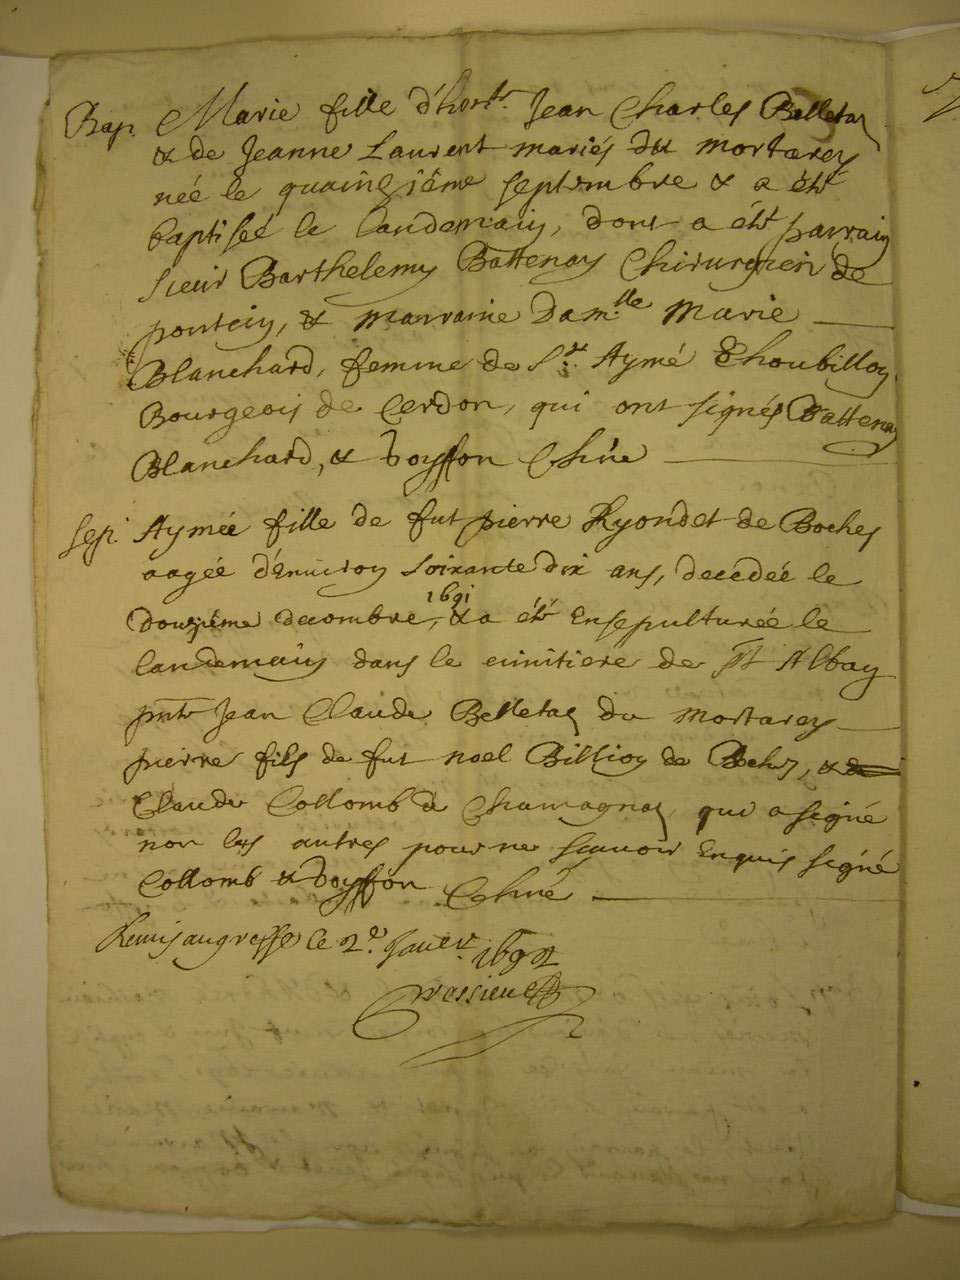 Bap. Marie fille d'hon.ble Jean Charles Belletan
& de Jeanne Laurent mariés du mortarey
née le quainziême septembre & a été
baptisée le landemain, dont a été parrain
sieur Barthelemy Battenay Chirurgien de
pontein, & marraine Dam.lle Marie
Blanchard, femme de S.r Aymé Thoubillon
Bourgeois de Cerdon, qui ont signés Battenay
Blanchard, & boysson Curé
Sep. Aymée fille de fut pierre Ryondet de Boches
aagée d'enuiron soixante dix ans, decedée le
1691
douzième decembre, & a été Ensepulturée le
landemain dans le cimitiere de St Alban
pnts Jean Claude Belletan du mortarey
pierre fils de fut noel Billion de Boches, &
Claude Collomb de Chamagnat, qui a signé
non les autres pour ne scauoir Enquis signé
Collomb & boysson Curé
Remis au greffe ce 2.e Janu.r 1692